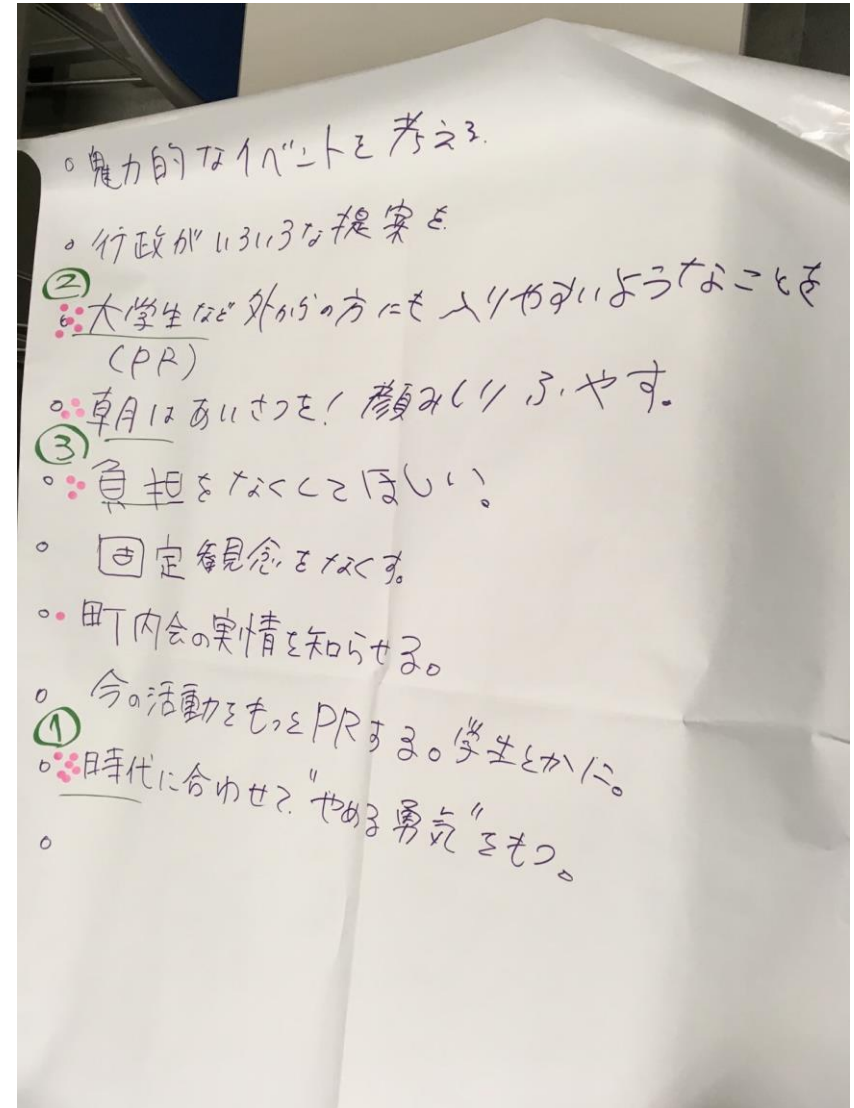 ○魅力的なイベントを考える.
○行政がいろいろな提案を
②
○大学生など外からの方にも入りやすいようなことを
(PR)
○朝はあいさつを!顔みしりふやす。
③
○負担をなくしてほしい。
○固定観念をなくす。
○町内会の実情を知らせる。
○今の活動をもっとPRする。学生とかに。
①
○時代に合わせて"やめる勇気"をもつ。
○